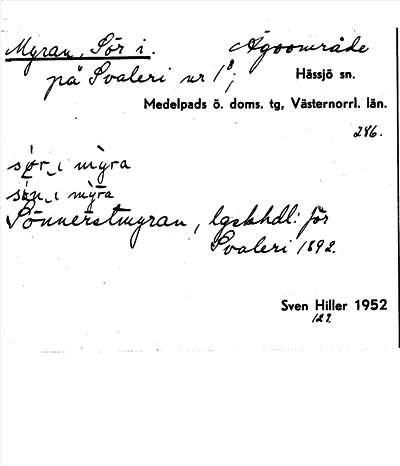 Myran, Sör i. Ägoområde
på Svaleri nr 1⁸;
Hässjö sn.
Medelpads ö. doms. tg, Västernorrl. län.
286.
sør i mỳra
søn i mỳra
Sönnerstmyran, lgskhdl. för
Svaleri 1892.
Sven Hiller 1952